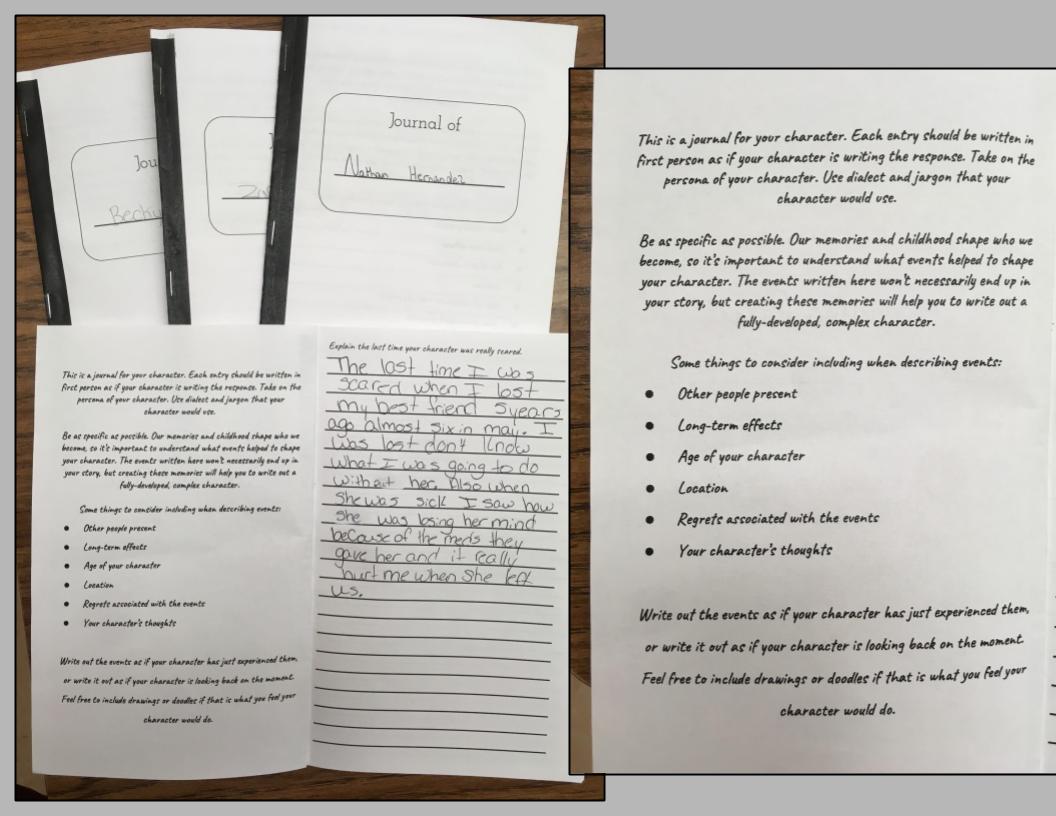 Jou
Becky
J
Journal of
Nathan Hernandez
This is a journal for your character. Each entry should be written in
first person as if your character is writing the response. Take on the
persona of your character. Use dialect and jargon that your
character would use.
Be as specific as possible. Our memories and childhood shape who we
become, so it's important to understand what events helped to shape
your character. The events written here won't necessarily end up in
your story, but creating these memories will help you to write out a
fully-developed, complex character.
Some things to consider including when describing events:
● Other people present
● Long-term effects
● Age of your character
● Location
● Regrets associated with the events
● Your character's thoughts
Write out the events as if your character has just experienced them,
or write it out as if your character is looking back on the moment.
Feel free to include drawings or doodles if that is what you feel your
character would do.
Explain the last time your character was really scared.
The last time I was
scared when I lost
my best friend 5 years
ago almost six in may. I
was lost don't know
what I was going to do
without her. Also when
she was sick I saw how
she was losing her mind
because of the meds they
gave her and it really
hurt me when she left
us.
This is a journal for your character. Each entry should be written in
first person as if your character is writing the response. Take on the
persona of your character. Use dialect and jargon that your
character would use.
Be as specific as possible. Our memories and childhood shape who we
become, so it's important to understand what events helped to shape
your character. The events written here won't necessarily end up in
your story, but creating these memories will help you to write out a
fully-developed, complex character.
Some things to consider including when describing events:
● Other people present
● Long-term effects
● Age of your character
● Location
● Regrets associated with the events
● Your character's thoughts
Write out the events as if your character has just experienced them,
or write it out as if your character is looking back on the moment.
Feel free to include drawings or doodles if that is what you feel your
character would do.